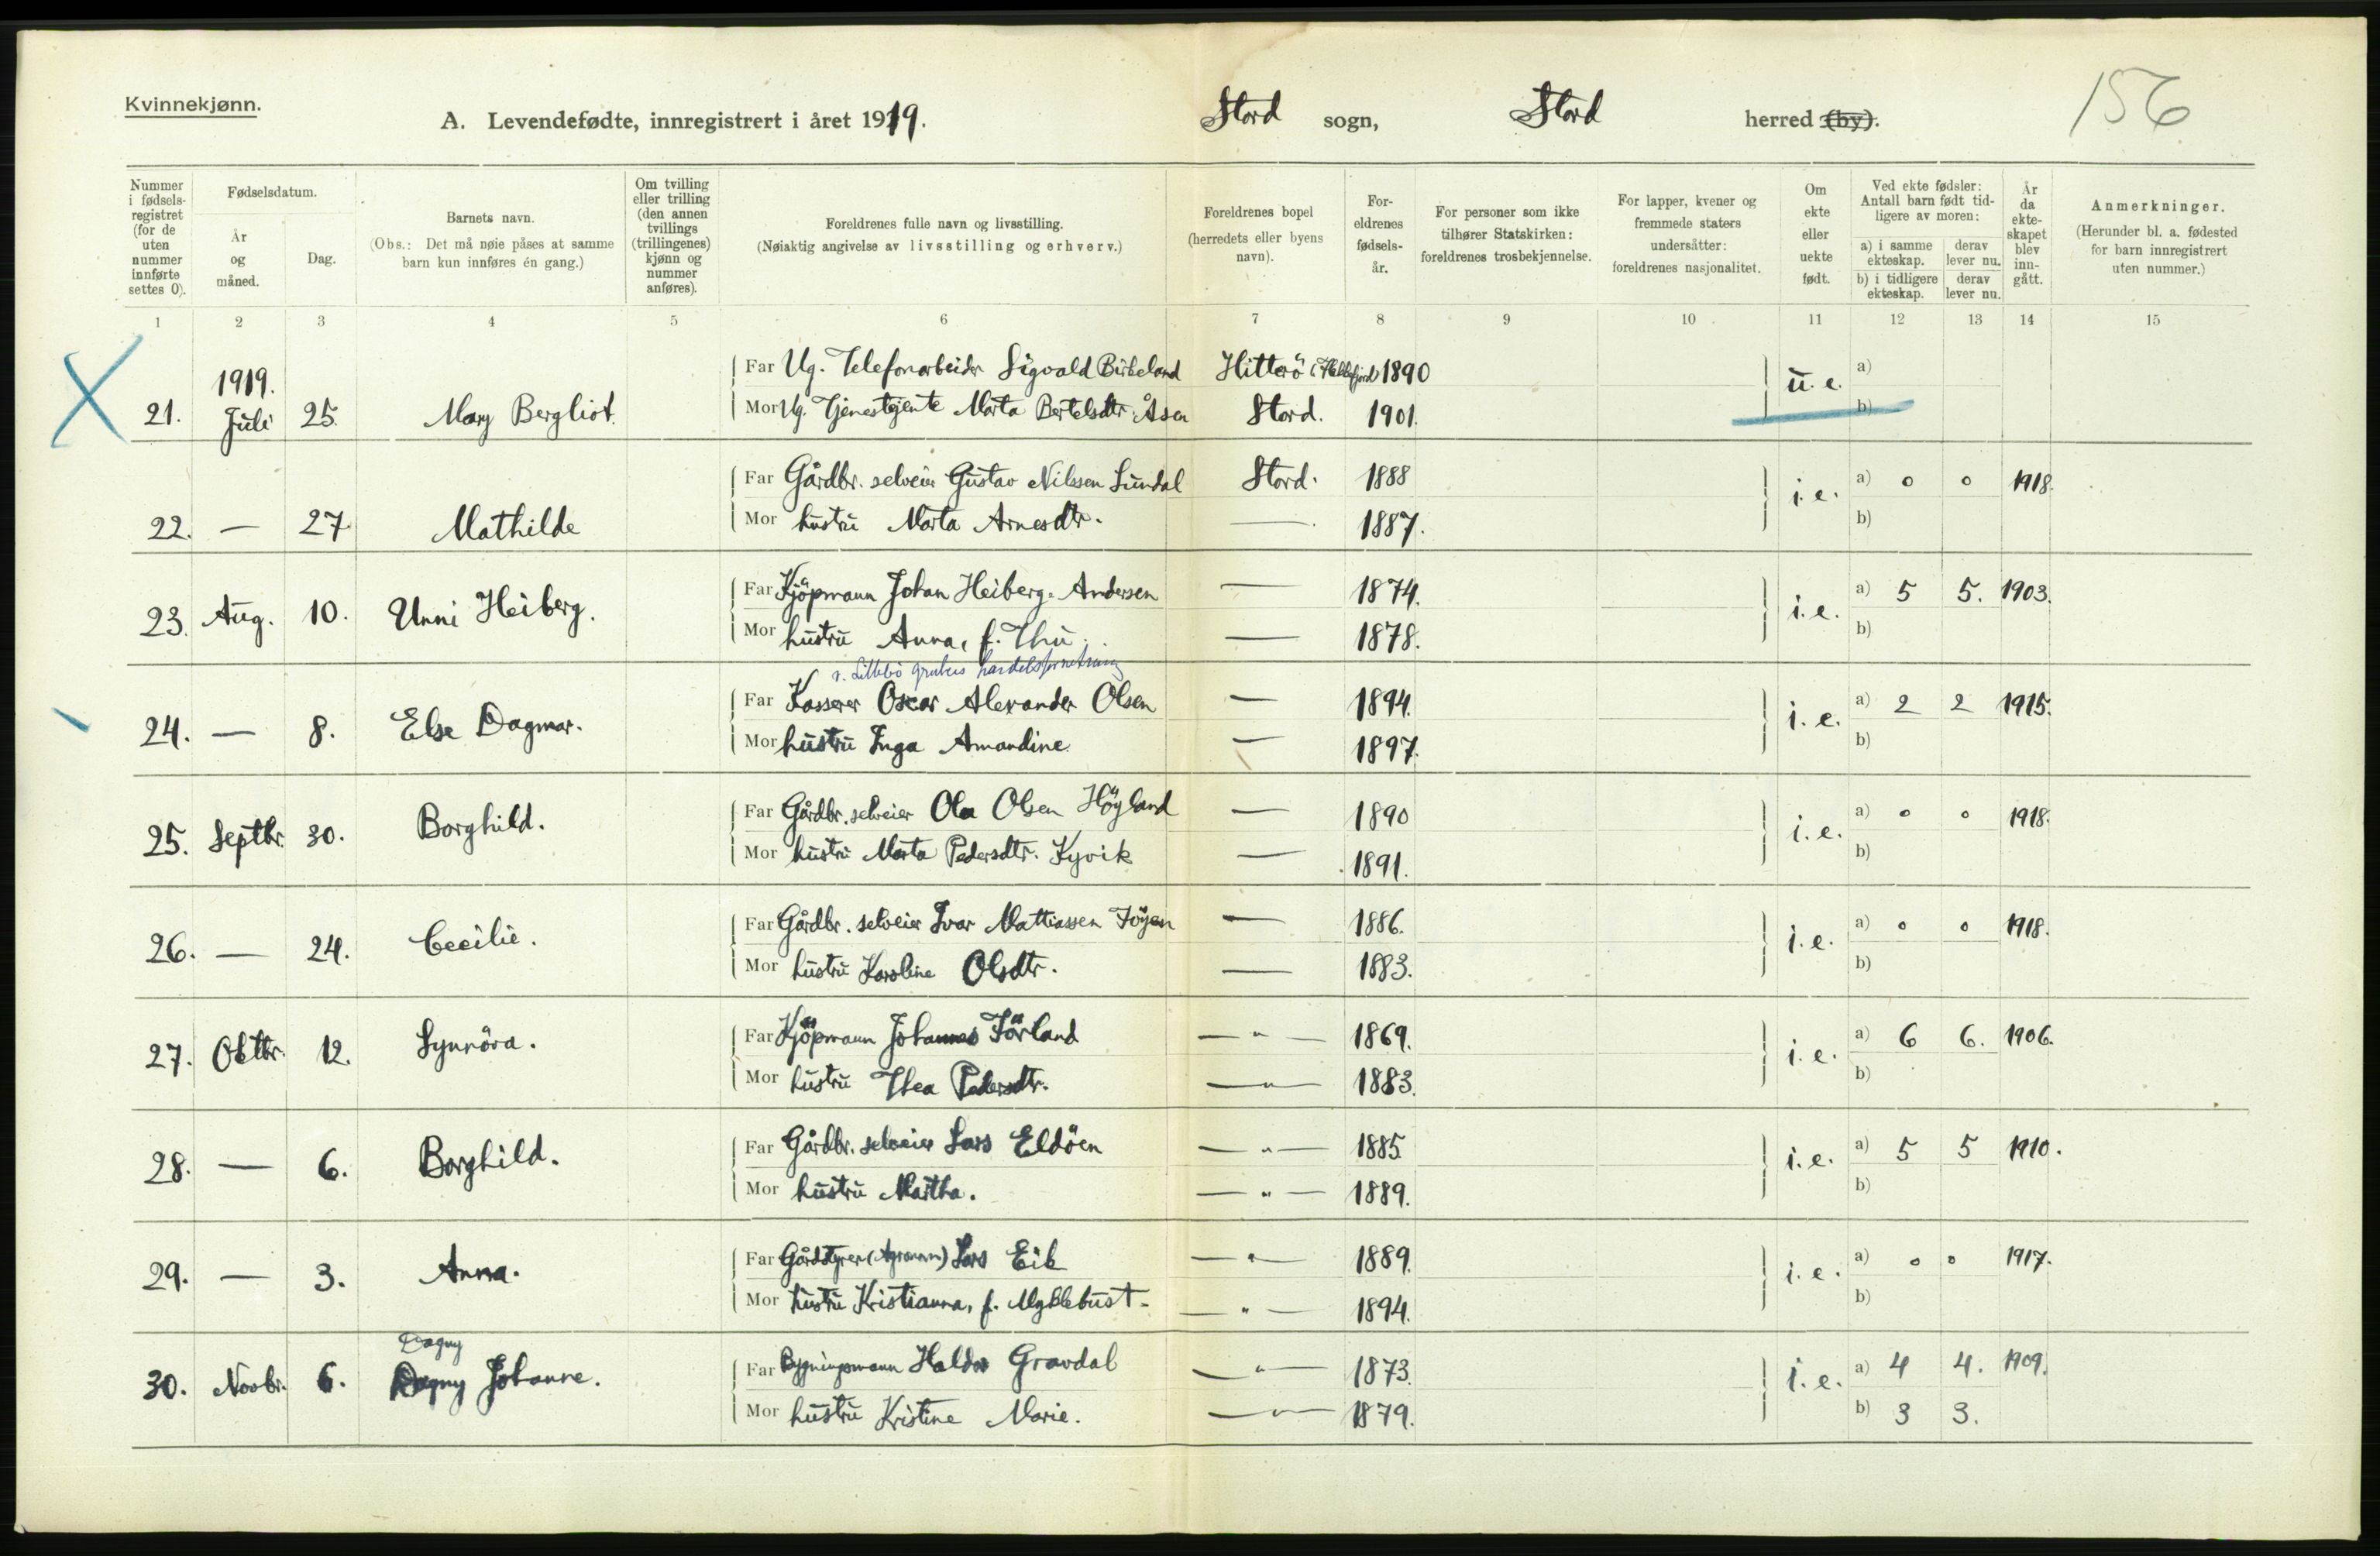 Kvinnekjønn.
A. Levendefødte, innregistrert i året 1919. Stord sogn, Stord herred (by). 156
Nummer i fødselsregistret (for de uten nummer innførte settes 0).
Fødselsdatum.
År og måned.
Dag.
Barnets navn.
(Obs.: Det må nøie påses at samme barn kun innføres én gang.)
Om tvilling eller trilling (den annen tvillings (trillingenes) kjønn og nummer anføres).
Foreldrenes fulle navn og livsstilling.
(Nøiaktig angivelse av livsstilling og erhverv.)
Foreldrenes bopel (herredets eller byens navn).
Foreldrenes fødselsår.
For personer som ikke tilhører Statskirken: foreldrenes trosbekjennelse.
For lapper, kvener og fremmede staters undersåtter: foreldrenes nasjonalitet.
Om ekte eller uekte født.
Ved ekte fødsler: Antall barn født tidligere av moren:
a) i samme ekteskap. derav lever nu.
b) i tidligere ekteskap. derav lever nu.
År da ekteskapet blev inngått.
Anmerkninger.
(Herunder bl. a. fødested for barn innregistrert uten nummer.)
1 2 3 4 5 6 7 8 9 10 11 12 13 14 15
Far Ug. Telefonarbeider Sigvald Birkeland Hitterö 1890 a)
21. 1919. Juli 25. Mary Bergliot. u. e.
Mor Ug. Tjenestejente Marta Bertelsdtr. Åsen Stord. 1901. b)
Far Gårdbr. selveier Gustav Nilssen Lundal Stord. 1888 a) 0 0 1918.
22. — 27. Mathilde i. e.
Mor hustru Marta Arnesdtr. — 1887. b)
Far Kjöpmann Johan Heiberg-Andersen — 1874. a) 5 5. 1903.
23. Aug. 10. Unni Heiberg. i. e.
Mor hustru Anna, f. Thu. — 1878. b)
v. Littlebö grubers handelsforretning
Far Kasserer Oscar Alexander Olsen — 1894. a) 2 2 1915.
24. — 8. Else Dagmar. i. e.
Mor hustru Inga Amandine. — 1897. b)
Far Gårdbr. selveier Ola Olsen Höyland — 1890 a) 0 0 1918.
25. Septbr. 30. Borghild. i. e.
Mor hustru Marta Pedersdtr. Kyvik — 1891. b)
Far Gårdbr. selveier Ivar Mattiassen — 1886. a) 0 0 1918.
26. — 24. Cecilie. i. e.
Mor hustru Karoline Olsdtr. — 1883. b)
Far Kjöpmann Johannes Förland — " — 1869. a) 6 6. 1906.
27. Oktbr. 12. Synnöva. i. e.
Mor hustru Thea Pedersdtr. — " — 1883. b)
Far Gårdbr. selveier Lars Eldöen — " — 1885 a) 5 5 1910.
28. — 6. Borghild. i. e.
Mor hustru Martha. — " — 1889. b)
Far Gårdstyrer (Agronom) Lars Eik — " — 1889. a) 0 0 1917.
29. — 3. Anna. i. e.
Mor hustru Kristianna, f. Myklebust. — " — 1894. b)
Dagny
Far Bygningsmann Haldor Gravdal — " — 1873. a) 4 4. 1909.
30. Novbr. 6. Dagny Johanne. i. e.
Mor hustru Kristine Marie. — " — 1879. b) 3 3.